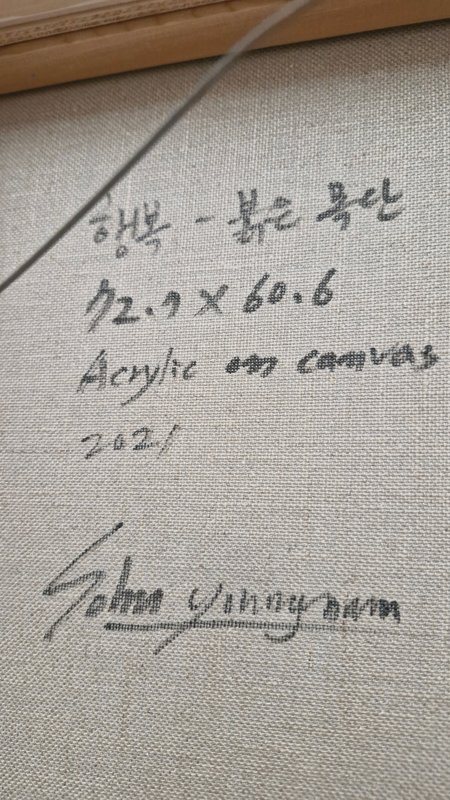 행복 - 붉은 목단
72.7 X 60.6
Acrylic on canvas
2021
Sohn young nam